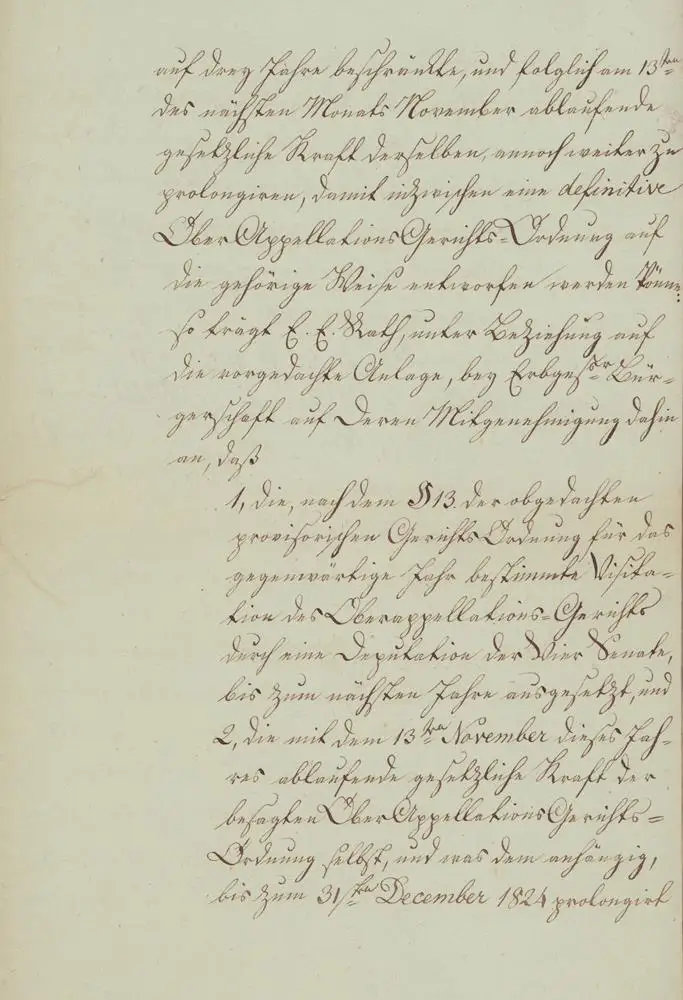 auf drey Jahre beschränkte, und folglich am 13ten
des nächsten Monats November ablaufende
gesetzliche Kraft derselben, annoch weiter zu
prolongiren, damit inzwischen eine definitive
OberAppellationsGerichts-Ordnung auf
die gehörige Weise entworfen werden könne:
so trägt E. E. Rath, unter Beziehung auf
die vorgedachte Anlage, bey Erbgesr Bür-
gerschaft auf Deren Mitgenehmigung dahin
an, daß
1, die, nach dem § 13. der obgedachten
provisorischen GerichtsOrdnung für das
gegenwärtige Jahr bestimmte Visita-
tion des Oberappellations-Gerichts
durch eine Deputation der Vier Senate,
bis zum nächsten Jahre ausgesetzt, und
2, die mit dem 13ten November dieses Jah-
res ablaufende gesetzliche Kraft der
besagten OberAppellationsGerichts-
Ordnung selbst, und was dem anhängig,
bis zum 31sten December 1824 prolongirt